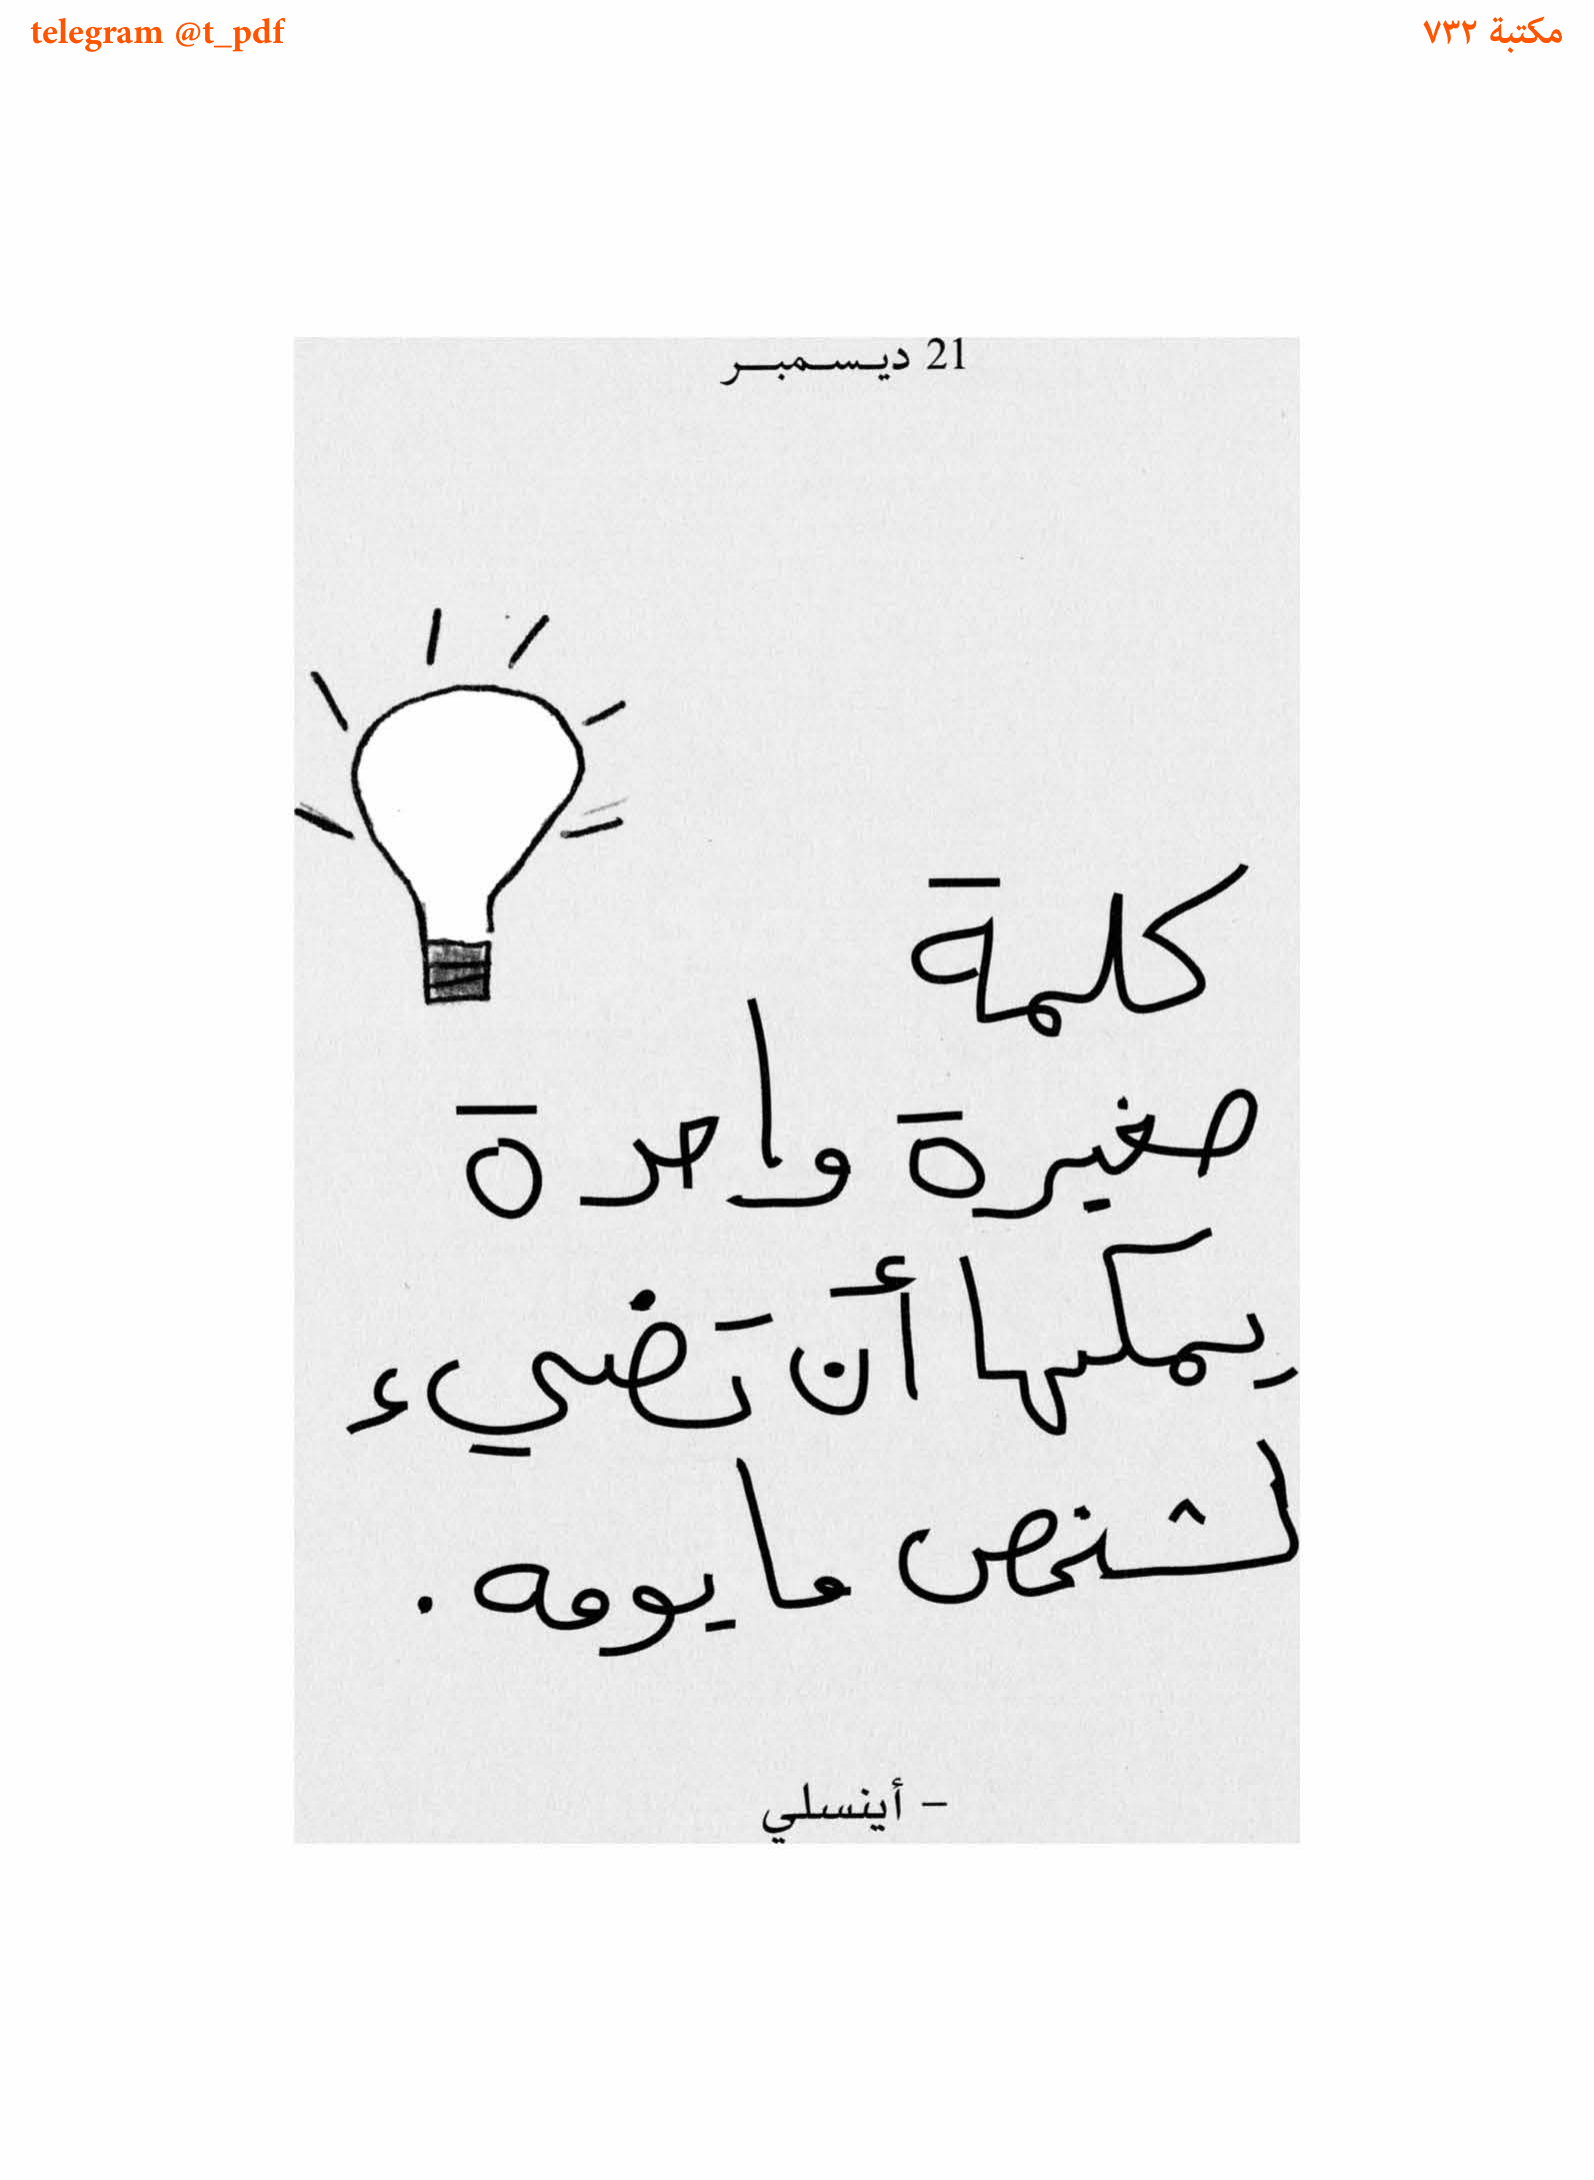 telegram @t_pdf
مكتبة ٧٣٢
21 ديسمبر
كلمة
صغيرة واحدة
يمكنها أن تضيء
لشخص ما يومه.
– أينسلي